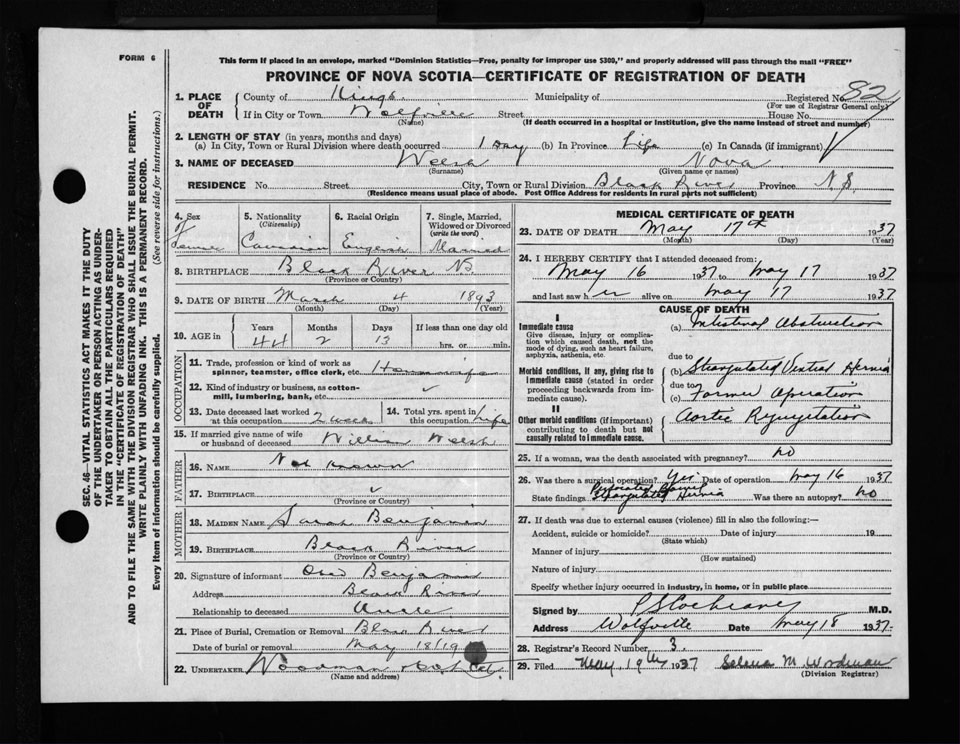 FORM 6
This form if placed in an envelope, marked "Dominion Statistics—Free, penalty for improper use $300," and properly addressed will pass through the mail "FREE"
PROVINCE OF NOVA SCOTIA—CERTIFICATE OF REGISTRATION OF DEATH
SEC. 46—VITAL STATISTICS ACT MAKES IT THE DUTY
OF THE UNDERTAKER OR PERSON ACTING AS UNDER-
TAKER TO OBTAIN ALL THE PARTICULARS REQUIRED
IN THE "CERTIFICATE OF REGISTRATION OF DEATH"
AND TO FILE THE SAME WITH THE DIVISION REGISTRAR WHO SHALL ISSUE THE BURIAL PERMIT.
WRITE PLAINLY WITH UNFADING INK. THIS IS A PERMANENT RECORD.
Every item of information should be carefully supplied. (See reverse side for instructions.)
1. PLACE OF DEATH County of Kings Municipality of Registered No. 82
(For use of Registrar General only)
If in City or Town Wolfville Street House No.
(Name) (If death occurred in a hospital or institution, give the name instead of street and number)
2. LENGTH OF STAY (in years, months and days)
(a) In City, Town or Rural Division where death occurred 1 Day (b) In Province Life (c) In Canada (if immigrant)
3. NAME OF DECEASED Welsh Nova
(Surname) (Given name or names)
RESIDENCE No. Street City, Town or Rural Division Black River Province N.S.
(Residence means usual place of abode. Post Office Address for residents in rural parts not sufficient)
4. Sex 5. Nationality (Citizenship) 6. Racial Origin 7. Single, Married, Widowed or Divorced (write the word)
Canadian English Married
8. BIRTHPLACE Black River NS.
(Province or Country)
9. DATE OF BIRTH March 4 1893
(Month) (Day) (Year)
10. AGE in Years Months Days If less than one day old
44 2 13 hrs. or min.
OCCUPATION
11. Trade, profession or kind of work as spinner, teamster, office clerk, etc. Housewife
12. Kind of industry or business, as cotton-mill, lumbering, bank, etc. ✓
13. Date deceased last worked at this occupation 14. Total yrs. spent in this occupation Life
15. If married give name of wife or husband of deceased William Welsh
FATHER
16. NAME Not known
17. BIRTHPLACE ✓
(Province or Country)
MOTHER
18. MAIDEN NAME Sarah Benjamin
19. BIRTHPLACE Black River
(Province or Country)
20. Signature of informant Benjamin
Address Black River
Relationship to deceased Uncle
21. Place of Burial, Cremation or Removal Black River
Date of burial or removal May 18/19
22. UNDERTAKER Woodman
(Name and address)
MEDICAL CERTIFICATE OF DEATH
23. DATE OF DEATH May 17th 1937
(Month) (Day) (Year)
24. I HEREBY CERTIFY that I attended deceased from:
May 16 1937 to May 17 1937
and last saw her alive on May 17 1937
CAUSE OF DEATH
I
Immediate cause (a) Intestinal Obstruction
Give disease, injury or complication which caused death, not the mode of dying, such as heart failure, asphyxia, asthenia, etc.
due to
(b) Strangulated Ventral Hernia
Morbid conditions, if any, giving rise to immediate cause (stated in order proceeding backwards from immediate cause).
due to
(c) Former Operation
II
Other morbid conditions (if important) contributing to death but not causally related to immediate cause. Aortic Regurgitation
25. If a woman, was the death associated with pregnancy? no
26. Was there a surgical operation? Yes Date of operation May 16 1937
State findings Perforated Strangulated Hernia Was there an autopsy? no
27. If death was due to external causes (violence) fill in also the following:—
Accident, suicide or homicide? Date of injury 19
(State which)
Manner of injury
(How sustained)
Nature of injury
Specify whether injury occurred in industry, in home, or in public place
Signed by P S Cochrane M.D.
Address Wolfville Date May 18 1937
28. Registrar's Record Number 3.
29. Filed May 19th 1937 M. Woodman
(Division Registrar)